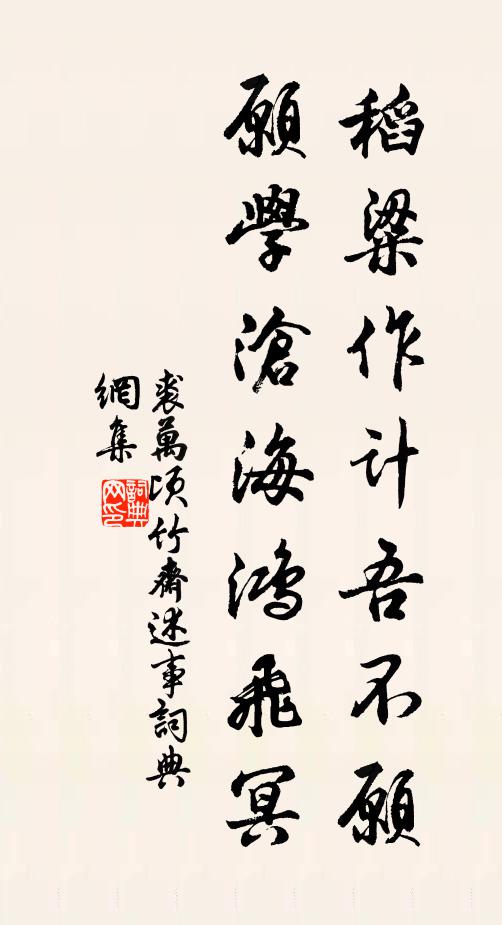 稻粱作计吾不願
願學滄海鴻飛冥
裘萬頃竹齋述事詞典
網集
詞典網